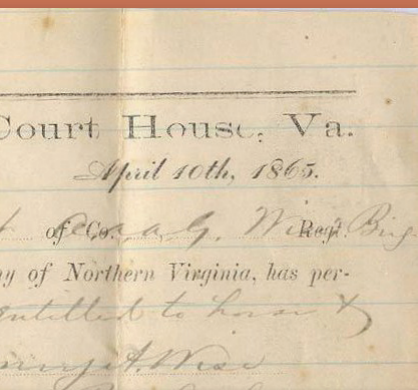 Court House, Va.
April 10th, 1865.
of Co. A. A. G. Wise Regt. Brig
ny of Northern Virginia, has per-
entitled to horse &
A. Wise